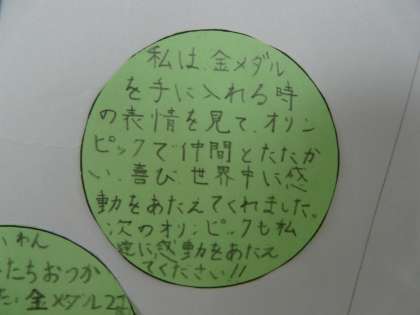 私は、金メダル
を手に入れる時
の表情を見て、オリン
ピックで仲間とたたか
い、喜び、世界中に感
動をあたえてくれました。
次のオリンピックも私
達に感動をあたえ
てください!!
いわん
たちおつか
た。金メダル2コ